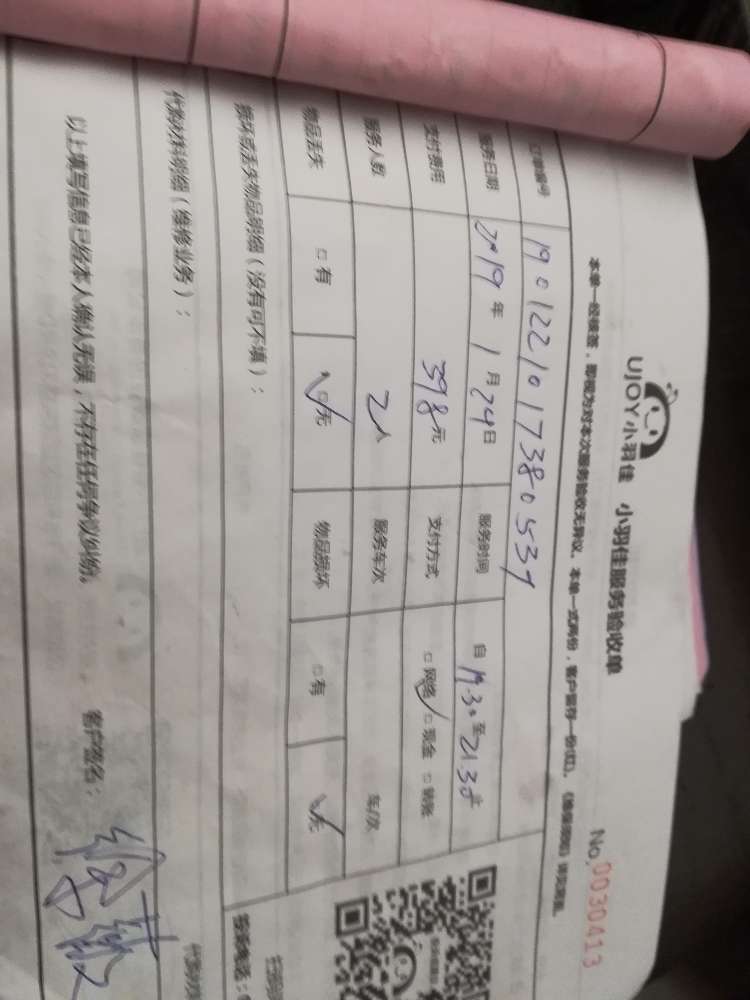 UJOY小羽佳 小羽佳服务验收单 No.0030413
本单一经接签，即视为对本次服务验收无异议。本单一式两份，客户留存一份(红)。
订单编号 190122101738053
服务日期 2019年1月24日 服务时间 自19:30至21:30
支付费用 398元 支付方式 □网络 □现金 □转账
服务人数 2人 服务车次 车/次
物品丢失 □有 □无 物品损坏 □有 □无
损坏或丢失物品明细（没有可不填）：
代购材料明细（维修业务）：
以上填写信息已经本人确认无误，不存在任何争议纠纷。 客户签名：